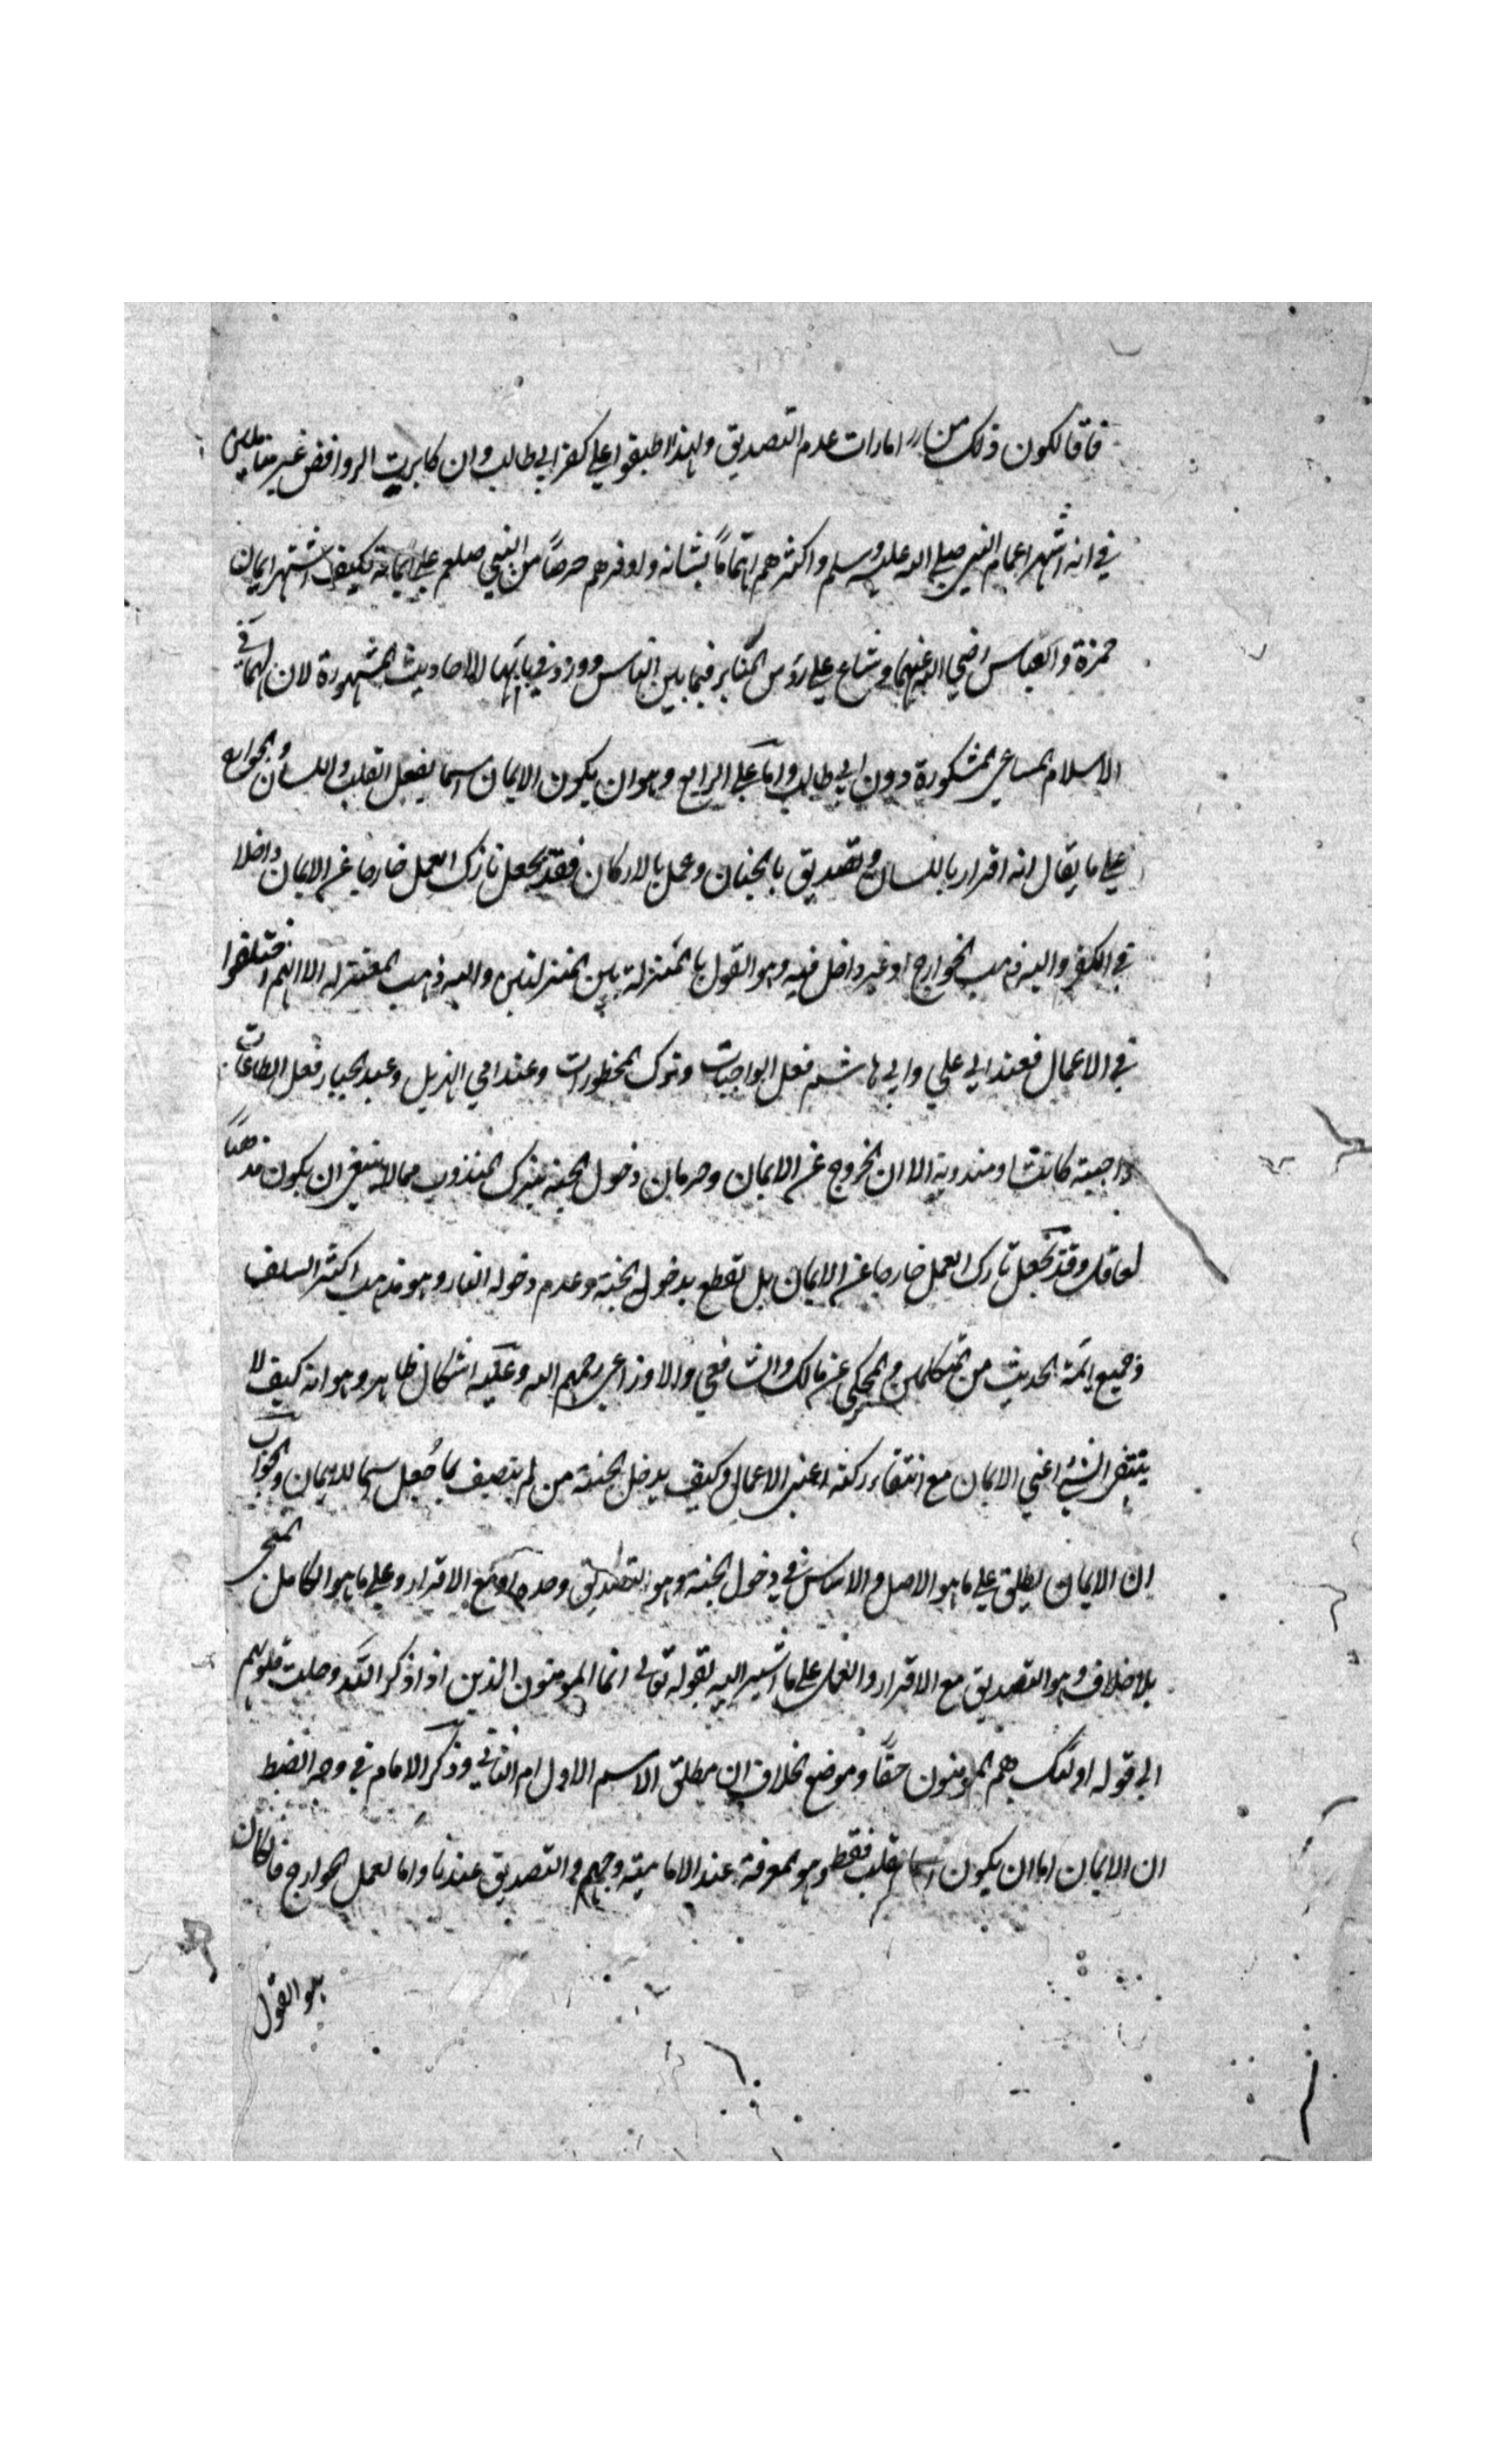 فاقا لكون ذلك من امارات عدم التصديق ولهذا اطبقوا علي كفر ابي طالب وان كابرت الروافض غير متاملين
في انه اشهر اعمام النبي صلي الله عليه وسلم واكثرهم اهتماماً بشانه واوفرهم حرصاً من النبي صلعم علي ايمانه فكيف اشتهر ايمان
حمزة والعباس رضي الله عنهما وشاع علي رؤس المنابر فيما بين الناس وورد في بابهما الاحاديث المشهورة لان لهما في
الاسلام المساعي المشكورة دون ابي طالب واما علي الرابع وهو ان يكون الايمان اسما لفعل القلب واللسان والجوارح
علي ما يقال انه اقرار باللسان وتصديق بالجنان وعمل بالاركان فقد يجعل تارك العمل خارجا عن الايمان داخلا
في الكفر واليه ذهب الخوارج او غير داخل فيه وهو القول بالمنزلة بين المنزلتين واليه ذهب المعتزله الا انهم اختلفوا
في الاعمال فعند ابي علي وابي هاشم فعل الواجبات وترك المحظورات وعند ابي الهذيل وعبد الجبار فعل الطاعات
واجبة كانت او مندوبة الا ان الخروج عن الايمان وحرمان دخول الجنه بترك المندوب مما لا ينبغي ان يكون مذهباً
لعاقل وقد يجعل تارك العمل خارجا عن الايمان بل نقطع بدخوله الجنة وعدم دخوله النار وهو مذهب اكثر السلف
وجميع ايمة الحديث من المتكلمين والمحكي عن مالك والشافعي والاوزاعي رحمهم الله وعليه اشكال ظاهر وهو انه كيف لا
ينتفي الشئ اعني الايمان مع انتفاء ركنه اعني الاعمال وكيف يدخل الجنة من لم يتصف بما جُعل اسما للايمان والجواب
ان الايمان يطلق علي ما هو الاصل والاساس في دخول الجنه وهو التصديق وحده او مع الاقرار وعلي ما هو الكامل المنجي
بلا خلاف وهو التصديق مع الاقرار والعمل علي ما اشير اليه بقوله تعالي انما المومنون الذين اذا ذكر الله وجلت قلوبهم
الي قوله اولئك هم المومنون حقاً وموضع الخلاف ان مطلق الاسم الاول ام الثاني وذكر الامام في وجه الضبط
ان الايمان اما ان يكون اسما لعمل القلب فقط وهو المعرفة عند الامامية وجهم والتصديق عندنا واما لعمل الجوارح فان كان
هو القول